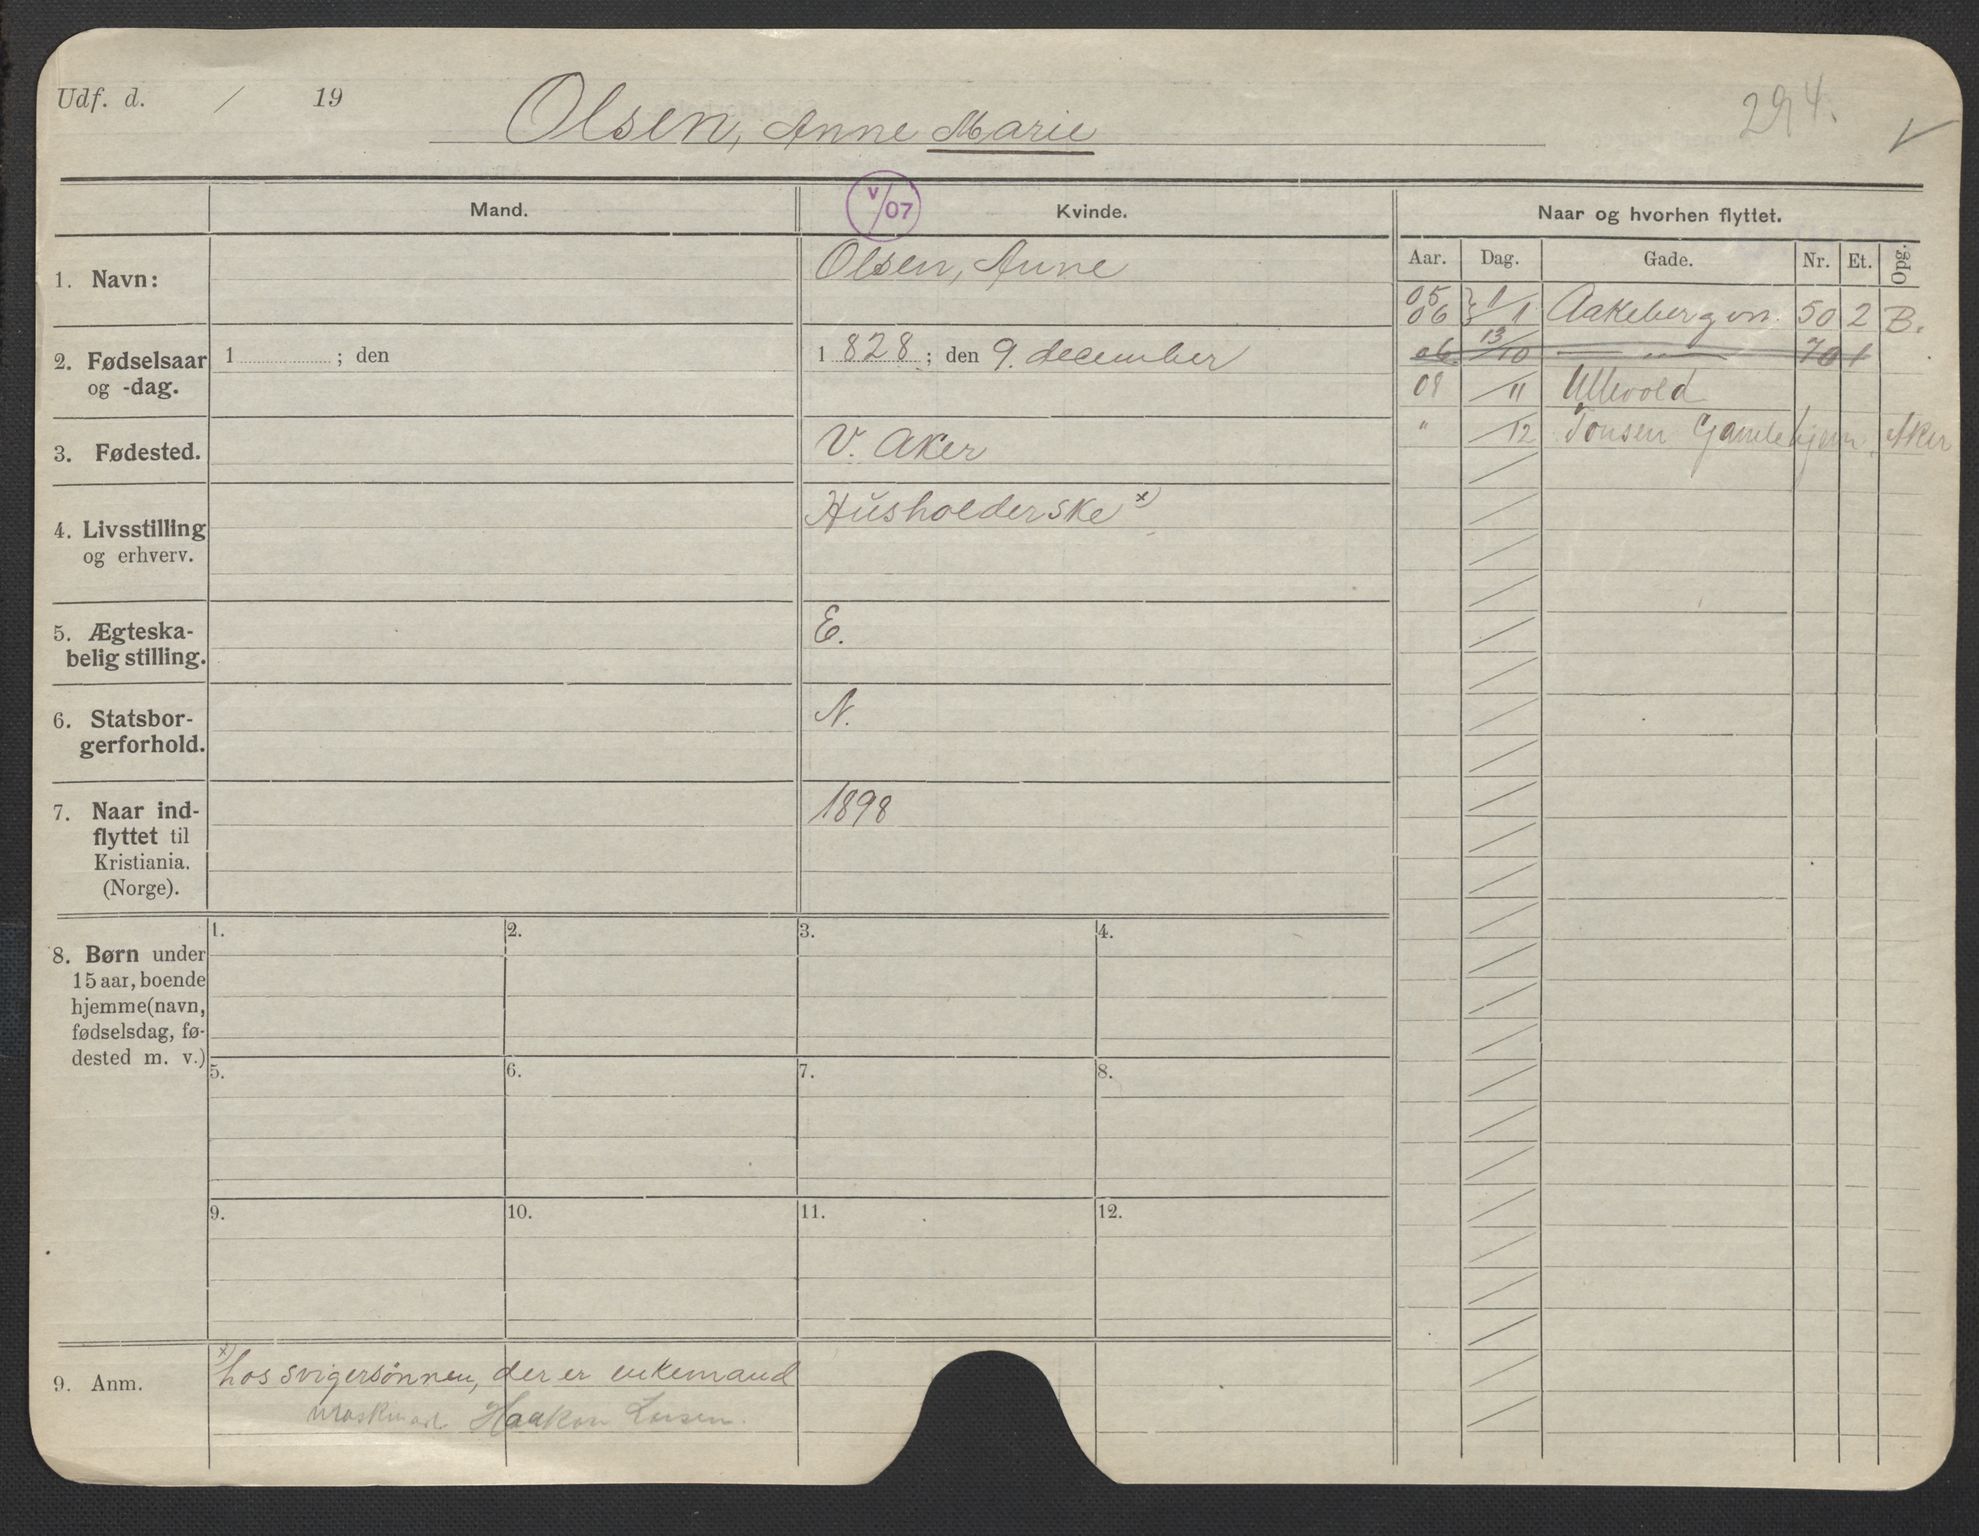 Udf. d. / 19
Olsen, Anne Marie
294.
V/07
Mand.
Kvinde.
Naar og hvorhen flyttet.
Aar. Dag. Gade. Nr. Et. Opg.
1. Navn:
Olsen, Anne
2. Fødselsaar
og -dag.
1 ; den
1 828 ; den 9. december
3. Fødested.
V. Aker
4. Livsstilling
og erhverv.
Husholderske x)
5. Ægteska-
belig stilling.
E.
6. Statsbor-
gerforhold.
N.
7. Naar ind-
flyttet til
Kristiania.
(Norge).
1898
05
06 } 1/1 Aakebergvn. 50 2 B.
06 13/10 — „ — 70 1
08 /11 Ullevold
" /12 Tonsen Gamlehjem, Aker
8. Børn under
15 aar, boende
hjemme (navn,
fødselsdag, fø-
dested m. v.)
1. 2. 3. 4.
5. 6. 7. 8.
9. 10. 11. 12.
9. Anm.
x) hos svigersønnen, der er enkemand
Haakon Larsen.